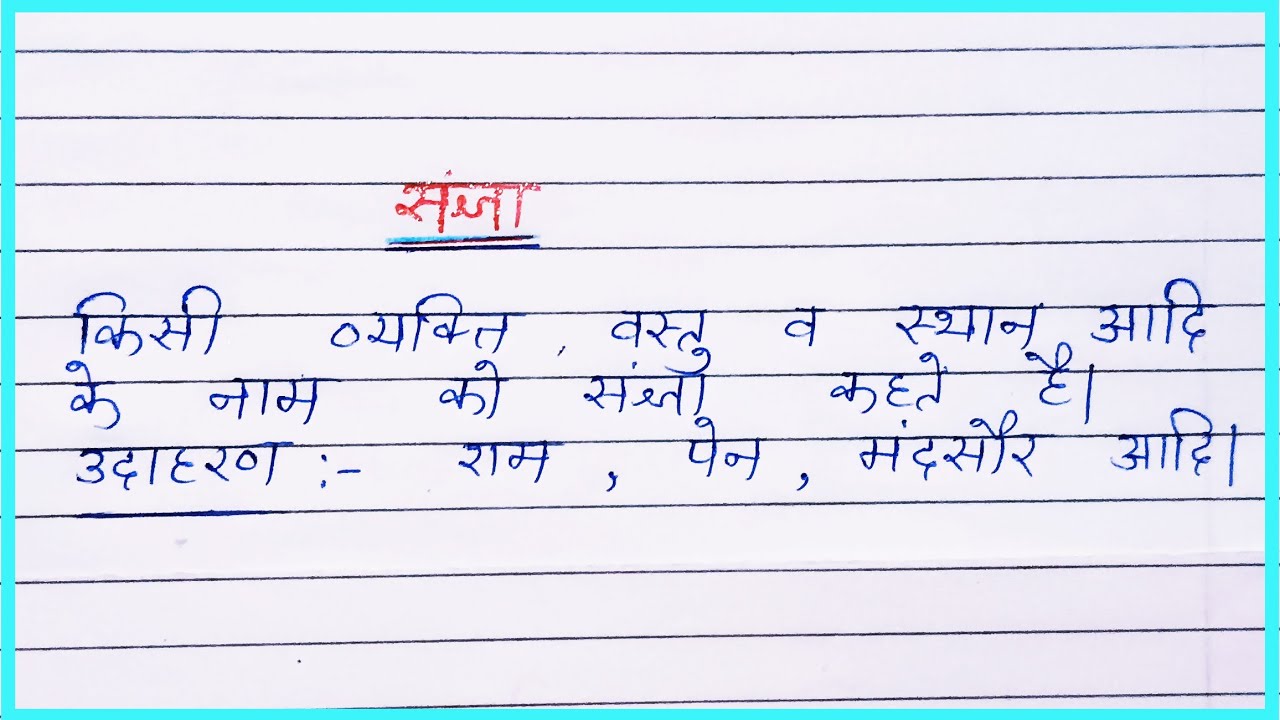 संज्ञा
किसी व्यक्ति, वस्तु व स्थान आदि
के नाम को संज्ञा कहते है।
उदाहरण :- राम, पेन, मंदसौर आदि।